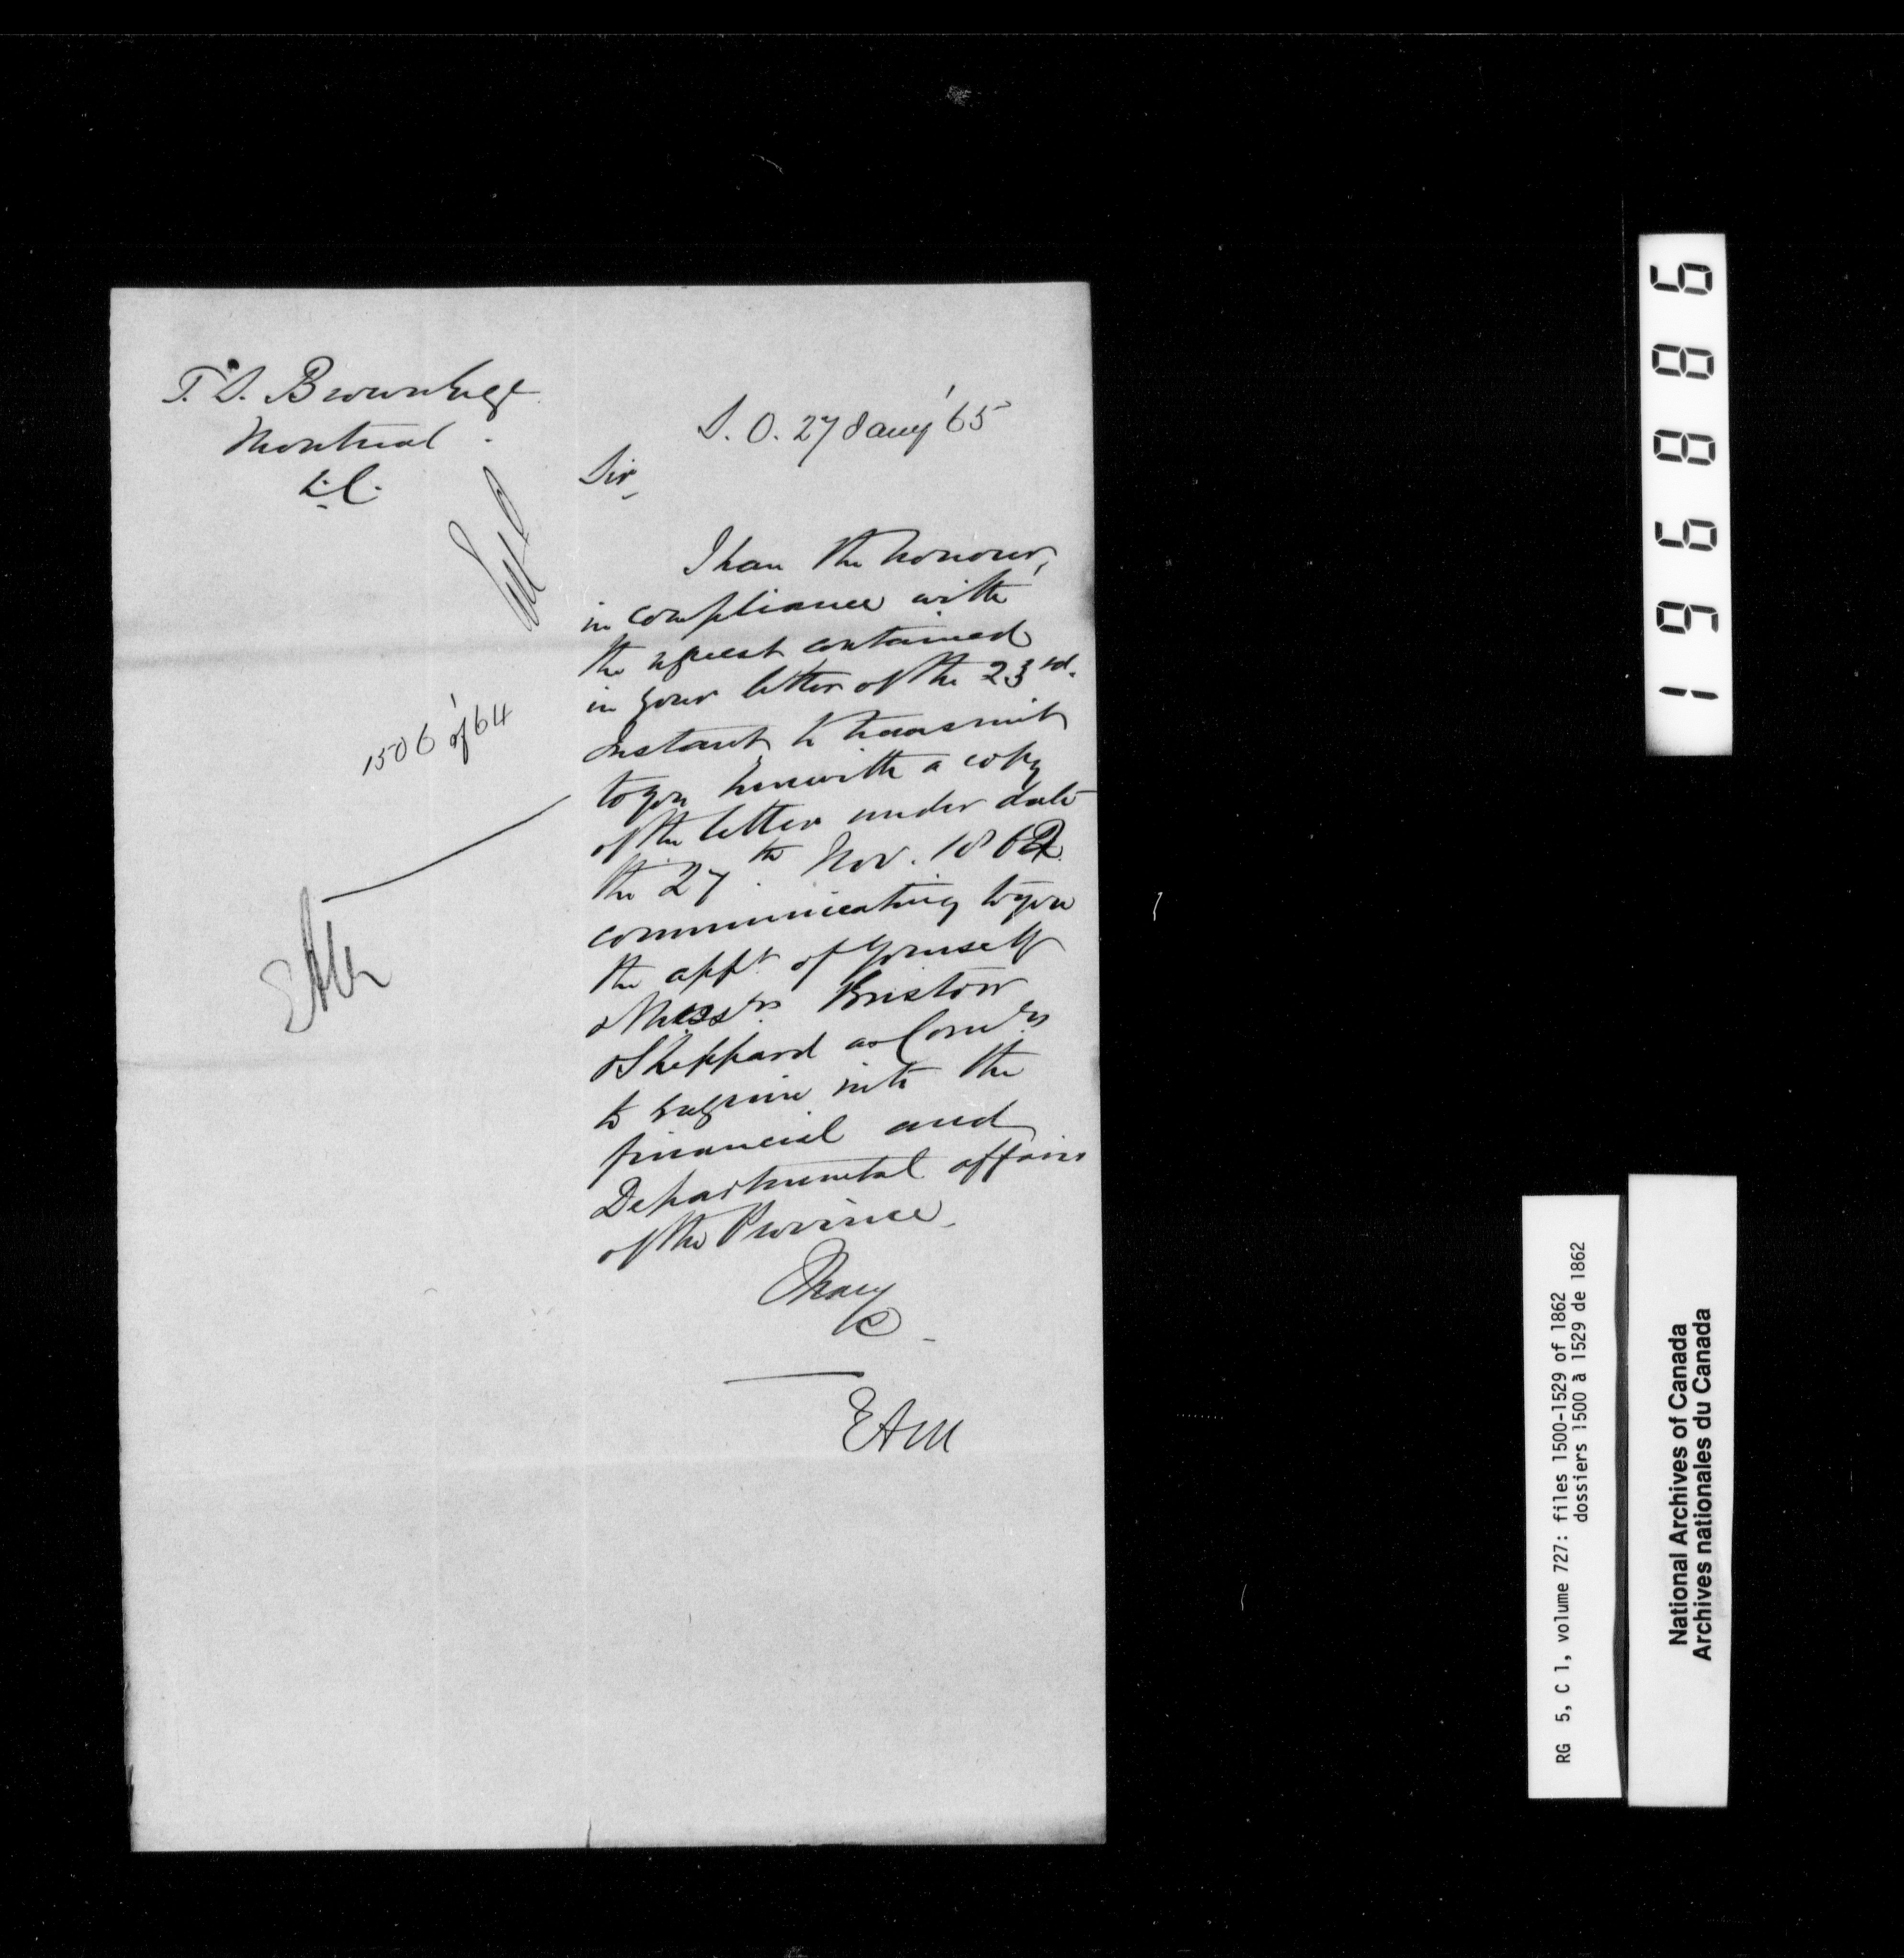 T. S. Brown Esqr
Montreal
L.C.
S. O. 27 Jany '65
Sir,
I have the honour,
in compliance with
the request contained
in your letter of the 23rd.
Instant, to transmit
to you herewith a copy
of the letter under date
the 27th Nov. 1862
communicating to you
the appt. of yourself
& Messrs. Bristow
& Sheppard as Comrs
to enquire into the
financial and
Departmental affairs
of the Province.
I have
&c
EAM
1506 of '64
EAM
196886
RG 5, C 1, volume 727: files 1500-1529 of 1862
dossiers 1500 à 1529 de 1862
National Archives of Canada
Archives nationales du Canada